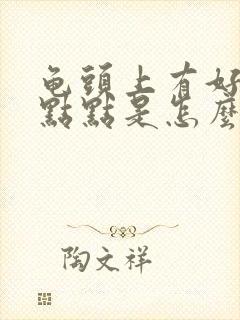 龟頭上有好
點點是怎麼
陶文祥